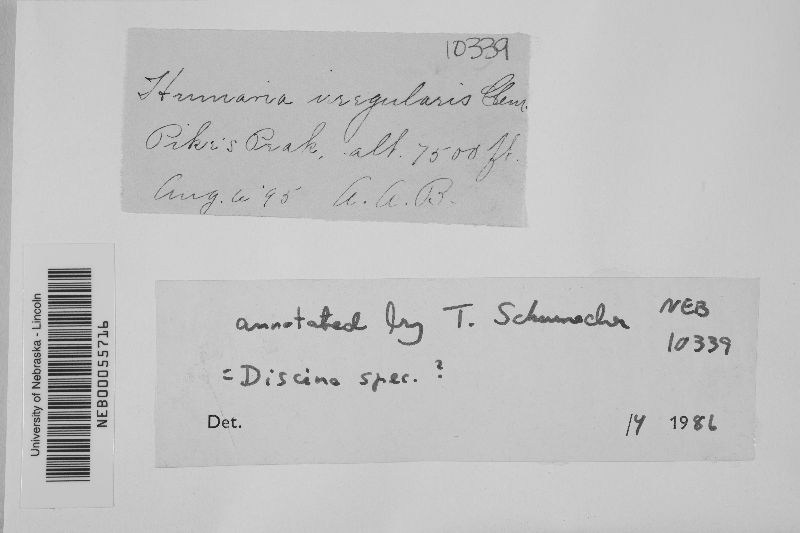 10339
Humaria irregularis Clem.
Pike's Peak, alt. 7500 ft.
Aug. 6 '95 A. A. B.
University of Nebraska - Lincoln
NEB00055716
annotated by T. Schumacher NEB
10339
= Discina spec. ?
Det. 14 1986